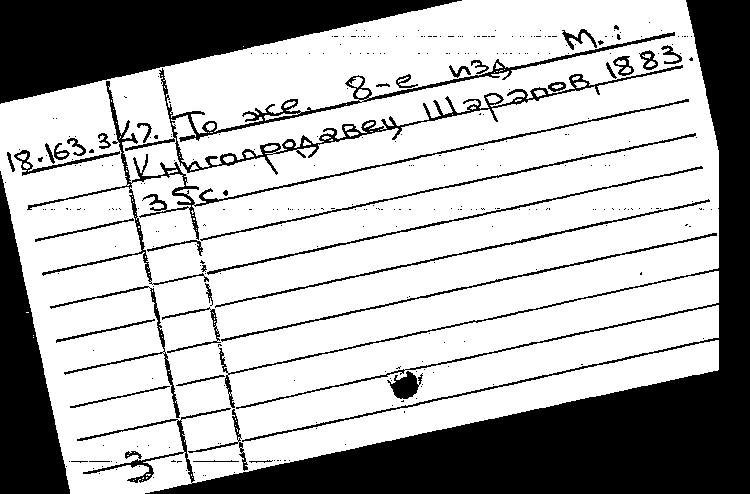 18.163.3.47. То же. 8-е изд М.:
Книгопродавец Шарапов, 1883.
35с.
3